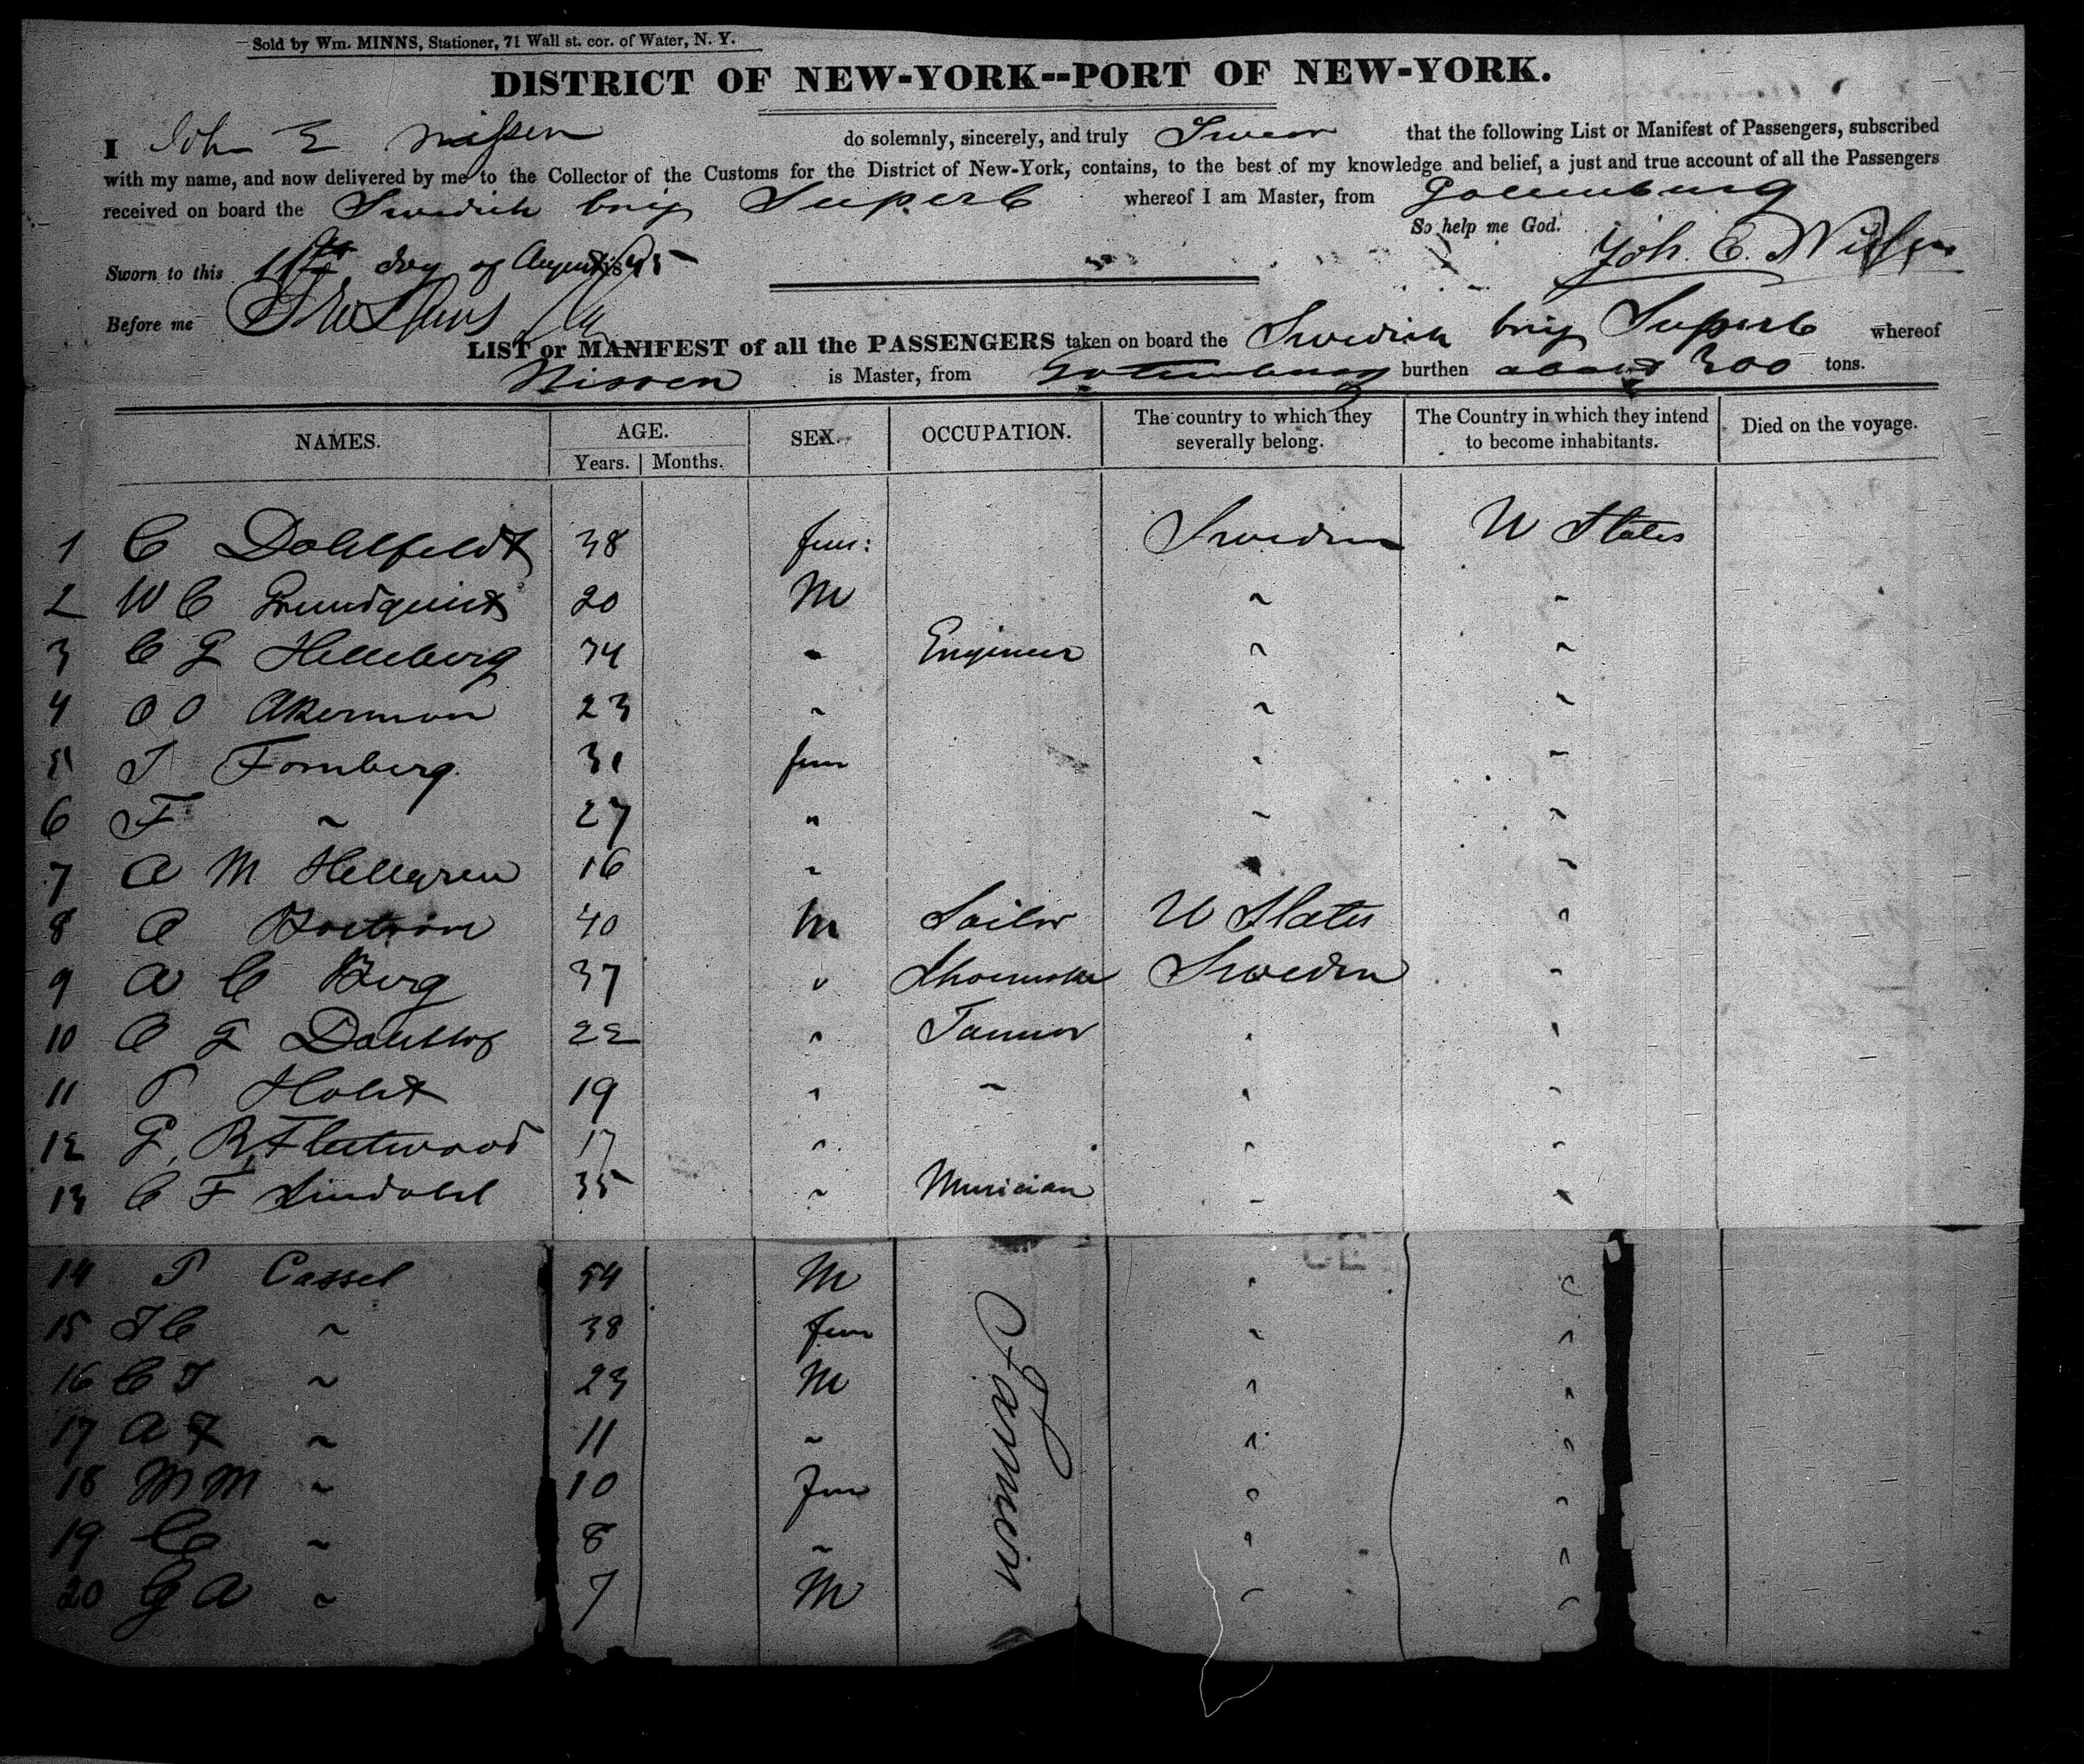 Sold by Wm. MINNS, Stationer, 71 Wall st. cor. of Water, N. Y.
DISTRICT OF NEW-YORK--PORT OF NEW-YORK.
I John E Nissen do solemnly, sincerely, and truly Swear that the following List or Manifest of Passengers, subscribed
with my name, and now delivered by me to the Collector of the Customs for the District of New-York, contains, to the best of my knowledge and belief, a just and true account of all the Passengers
received on board the Swedish brig Superb whereof I am Master, from Gothenburg
So help me God.
Sworn to this day of August 1845 Joh. E. Nissen
Before me
LIST or MANIFEST of all the PASSENGERS taken on board the Swedish brig Superb whereof
Nissen is Master, from Gothenburg burthen about 300 tons.
NAMES. AGE. Years. Months. SEX. OCCUPATION. The country to which they severally belong. The Country in which they intend to become inhabitants. Died on the voyage.
1 C Dahlfeldt 38 fem: Sweden U States
2 W C Grundquist 20 M " "
3 C G Helleberg 34 " Engineer " "
4 O O Akerman 23 " " "
5 J Fornberg 31 fem " "
6 F " 27 " " "
7 A M Hellgren 16 " " "
8 A Bostrom 40 M Sailor U States "
9 A C Berg 37 " Shoemaker Sweden "
10 C G Dahllof 22 " Tanner " "
11 P Holst 19 " " " "
12 G. R. Fleetwood 17 " " "
13 C F Lindahl 35 " Musician " "
14 P Cassel 54 M Farmers " "
15 I C " 38 fem " "
16 C J " 23 M " "
17 A F " 11 " " "
18 M M " 10 fem " "
19 C " 8 " " "
20 G A " 7 M " "